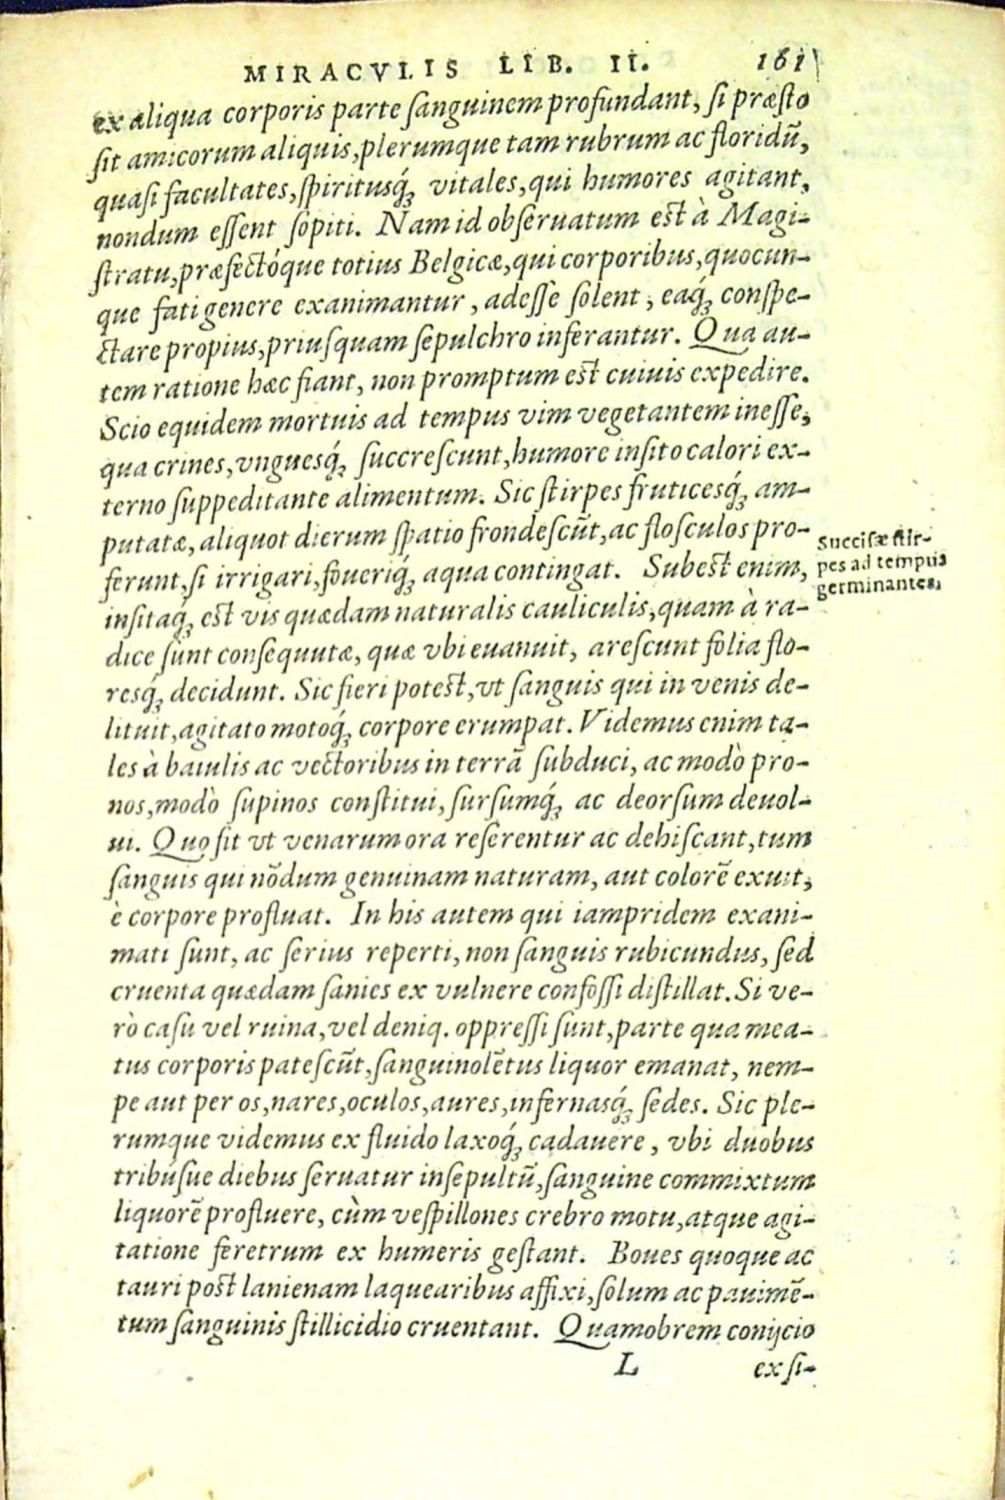 MIRACVLIS LIB. II. 161
ex aliqua corporis parte ſanguinem profundant, ſi præſto
ſit amicorum aliquis, plerumque tam rubrum ac floridũ,
quaſi facultates, ſpiritusq́ꝫ vitales, qui humores agitant,
nondum eſſent ſopiti. Nam id obſeruatum eſt à Magi-
ſtratu, præfectóque totius Belgicæ, qui corporibus, quocun-
que fati genere exanimantur, adeſſe ſolent, eaq́ꝫ conſpe-
ctare propius, priuſquam ſepulchro inferantur. Qua au-
tem ratione hæc fiant, non promptum eſt cuiuis expedire.
Scio equidem mortuis ad tempus vim vegetantem ineſſe,
qua crines, vnguesq́ꝫ ſuccreſcunt, humore inſito calori ex-
terno ſuppeditante alimentum. Sic ſtirpes fruticesq́ꝫ am-
putatæ, aliquot dierum ſpatio frondeſcũt, ac floſculos pro-
ferunt, ſi irrigari, foueriq́ꝫ aqua contingat. Subeſt enim,
inſitaq́ꝫ eſt vis quædam naturalis cauliculis, quam à ra-
dice ſunt conſequutæ, quæ vbi euanuit, areſcunt folia flo-
resq́ꝫ decidunt. Sic fieri poteſt, vt ſanguis qui in venis de-
lituit, agitato motoq́ꝫ corpore erumpat. Videmus enim ta-
les à baiulis ac vectoribus in terrã ſubduci, ac modò pro-
nos, modò ſupinos conſtitui, ſurſumq́ꝫ ac deorſum deuol-
ui. Quo fit vt venarum ora reſerentur ac dehiſcant, tum
ſanguis qui nõdum genuinam naturam, aut colorẽ exuit,
è corpore profluat. In his autem qui iampridem exani-
mati ſunt, ac ſerius reperti, non ſanguis rubicundus, ſed
cruenta quædam ſanies ex vulnere confoſſi diſtillat. Si ve-
rò caſu vel ruina, vel deniq. oppreſſi ſunt, parte qua mea-
tus corporis pateſcũt, ſanguinolẽtus liquor emanat, nem-
pe aut per os, nares, oculos, aures, infernasq́ꝫ ſedes. Sic ple-
rumque videmus ex fluido laxoq́ꝫ cadauere, vbi duobus
tribúſue diebus ſeruatur inſepultũ, ſanguine commixtum
liquorẽ profluere, cùm veſpillones crebro motu, atque agi-
tatione feretrum ex humeris geſtant. Boues quoque ac
tauri poſt lanienam laquearibus affixi, ſolum ac pauimẽ-
tum ſanguinis ſtillicidio cruentant. Quamobrem conijcio
L ex ſi-
Succiſæ ſtir-
pes ad tempus
germinantes.